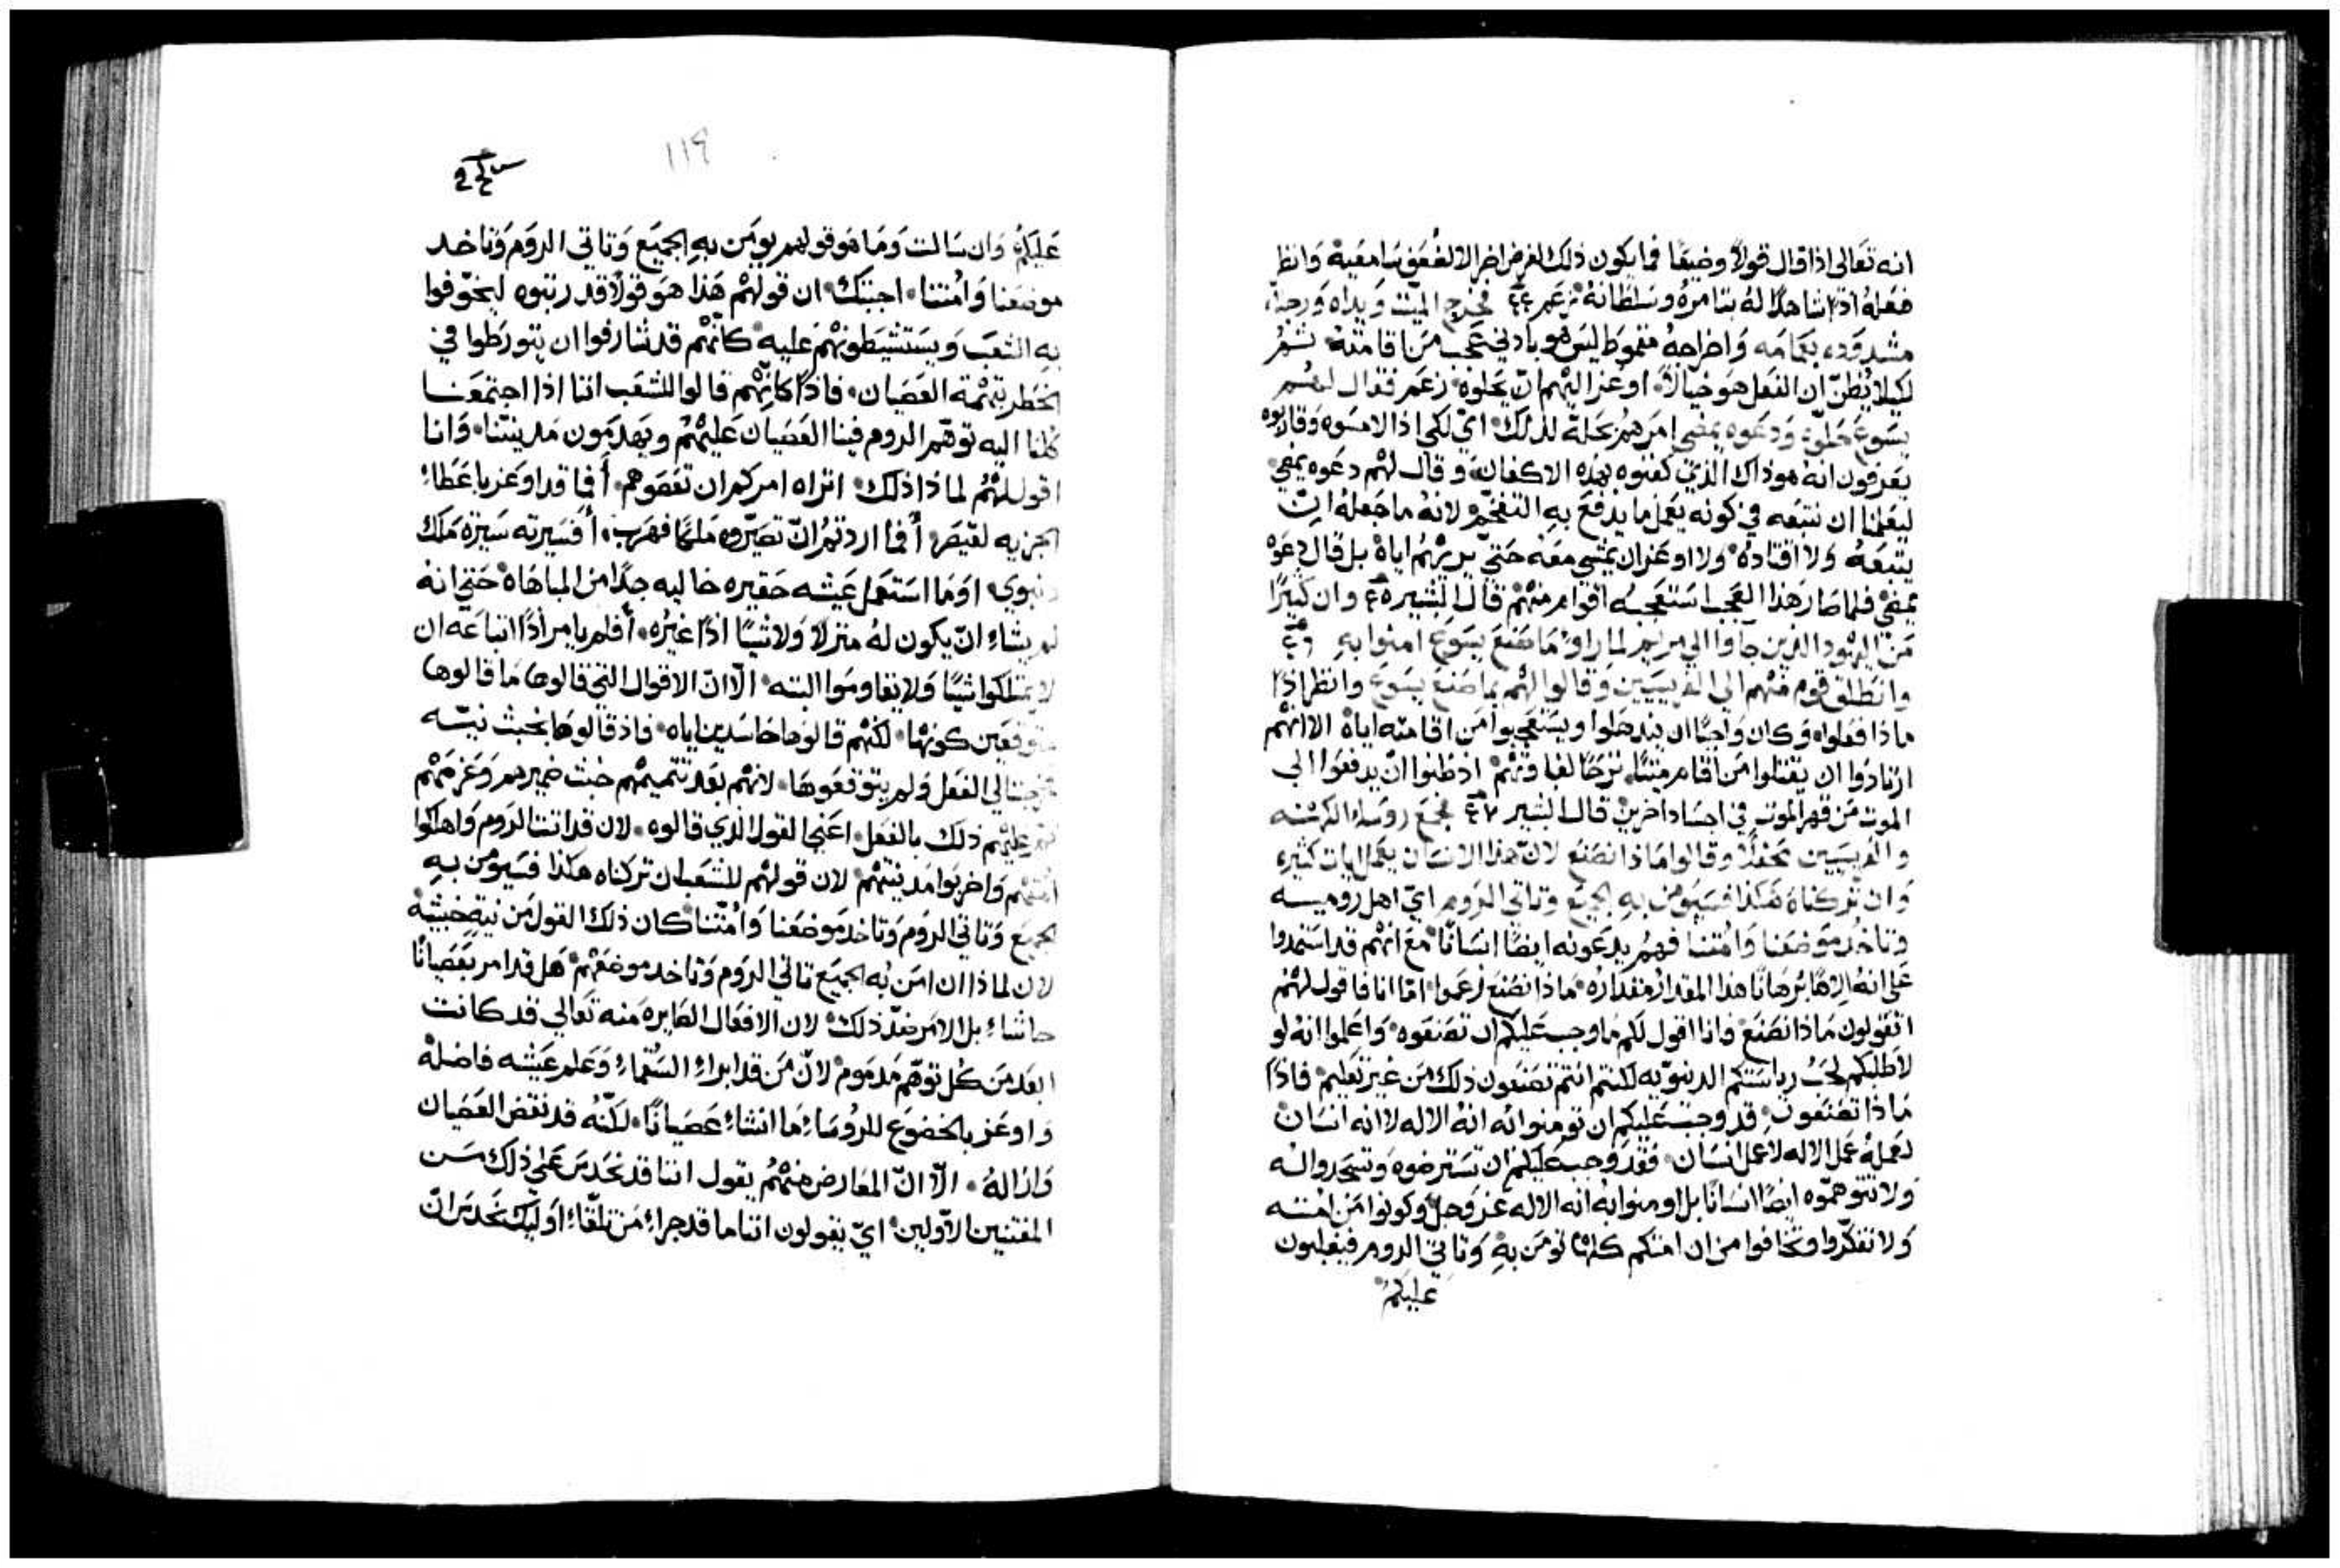 انه تعالى اذا قال قولاً وضيعًا فما يكون ذلك لغرض اخر الا لضعف سامعيه وانظر
فعله اذًا شاهدًا له بتامره وسلطانه زعم ٤٤ فخرج الميت ويداه ورجلاه
مشدوده بعمامه واخراجه مقموط ليس هو بادني عجب من اقامته ثم
لكيلا يُظن ان الفعل هو خيالاً اوعز اليهم ان يحلوه زعم فقال لهم
يسوع حلوه ودعوه يمضي امرهم بحله لذلك اي لكي اذا لامسوه وقاربوه
يعرفون انه هو ذاك الذي كفنوه بهذه الاكفان وقال لهم دعوه يمضي
ليعلمنا ان نتبعه في كونه يعمل ما يدفع به التفخم لانه ما جعله ان
يتبعه ولا اقتاده ولا اوعز ان يمشي معه حتي يريهم اياه بل قال دعوه
يمضي فلما صار هذا العجب استعجبه اقوام منهم قال البشير ٤٥ وان كثيرًا
من اليهود الذين جاوا الي مريم لما راوا ما صنع يسوع امنوا به ٤٦
وانطلق قوم منهم الي الفريسيين وقالوا لهم بما صنع يسوع وانظر اذًا
ماذا فعلوا وكان واجبًا ان يندهلوا ويستعجبوا من اقامته اياه الا انهم
ارتادوا ان يقتلوا من اقام ميتًا اذ ظنوا ان يدفعوا الي
الموت من قهر الموت في اجساد اخرين قال البشير ٤٧ فجمع روساء الكهنه
والفريسيين محفلاً وقالوا ماذا نصنع لان هذا الانسان يعمل ايات كثيره
وان تركناه هكذا فسيومن به الجميع وتاتي الروم اي اهل روميه
وتاخد موضعنا وامتنا فهم يدعونه ايضًا انسانًا مع انهم قد استمدوا
علي انه الاهًا برهانًا هذا المقدار مقداره ماذا نصنع زعموا اما انا فاقول لهم
اتقولون ماذا نصنع وانا اقول لكم ما وجب عليكم ان تصنعوه واعلموا انه لو
لاطلبكم لحب رياستكم الدنيويه لكنتم انتم تصنعون ذلك من غير تعليم فاذًا
ماذا تصنعون قد وجب عليكم ان تومنوا به انه الاله لا انه انسان
لعمله عمل الاله لا عمل انسان فقد وجب عليكم ان تسترضوه وتسجدوا له
ولا تتوهموه ايضًا انسانًا بل اومنوا به انه الاله عز وجل وكونوا من امته
ولا تفكروا وتخافوا من ان امتكم كلها تومن به وتاتي الروم فيغلبون
عليكم
١١٩
عليكم وان سالت وما هو قولهم يومن به الجميع وتاتي الروم وتاخد
موضعنا وامتنا اجبتك ان قولهم هذا هو قولاً قد رتبوه ليخوفوا
به الشعب ويستشيطونهم عليه كانهم قد شارفوا ان يتورطوا في
الخطر بتهمة العصيان فاذًا كانهم قالوا للشعب اننا اذا اجتمعنا
كلنا اليه توهم الروم فينا العصيان عليهم ويهدمون مدينتنا وانا
اقول لهم لماذا ذلك اتراه امركم ان تعصوهم أفما قد اوعز باعطاء
الجزيه لقيصر أفما اردتم ان تصيروه ملكًا فهرب أفسيرته سيرة ملك
دنيوي او ما استعمل عيشه حقيره خاليه جدًا من المباهاه حتي انه
لم يشاء ان يكون له منزلاً ولا شيًا اخر غيره أفلم يامر اذًا اتباعه ان
لا يمتلكوا شيًا ولا يقاوموا البته الا ان الاقوال التي قالوها ما قالوها
متوقعين كونها لكنهم قالوها حاسدين اياه فاذ قالوها بخبث نيته
خرجت الي الفعل ولم يتوقعوها لانهم بعد تتميمهم خبث ضميرهم وعزمهم
تم عليهم ذلك بالفعل اعني القول الذي قالوه لان قد اتت الروم واهلكوا
امتهم واخربوا مدينتهم لان قولهم للشعب ان تركناه هكذا فسيومن به
الجميع وتاتي الروم وتاخد موضعنا وامتنا كان ذلك القول من نية خبيثة
لان لماذا ان امن به الجميع تاتي الروم وتاخد موضعهم هل قد امر بعصيانًا
حاشاء بل الامر ضد ذلك لان الافعال الصايره منه تعالي قد كانت
ابعد من كل توهم مذموم لان من قد ابراء السقماء وعلم عيشه فاضلة
واوعز بالخضوع للروساء ما انشاء عصيانًا لكنه قد نقض العصيان
وازاله الا ان المعارض منهم يقول اننا قد نحدس علي ذلك من
المفتنين الاولين اي يقولون اننا ما قد جراء من تلقاء اوليك نحدس ان